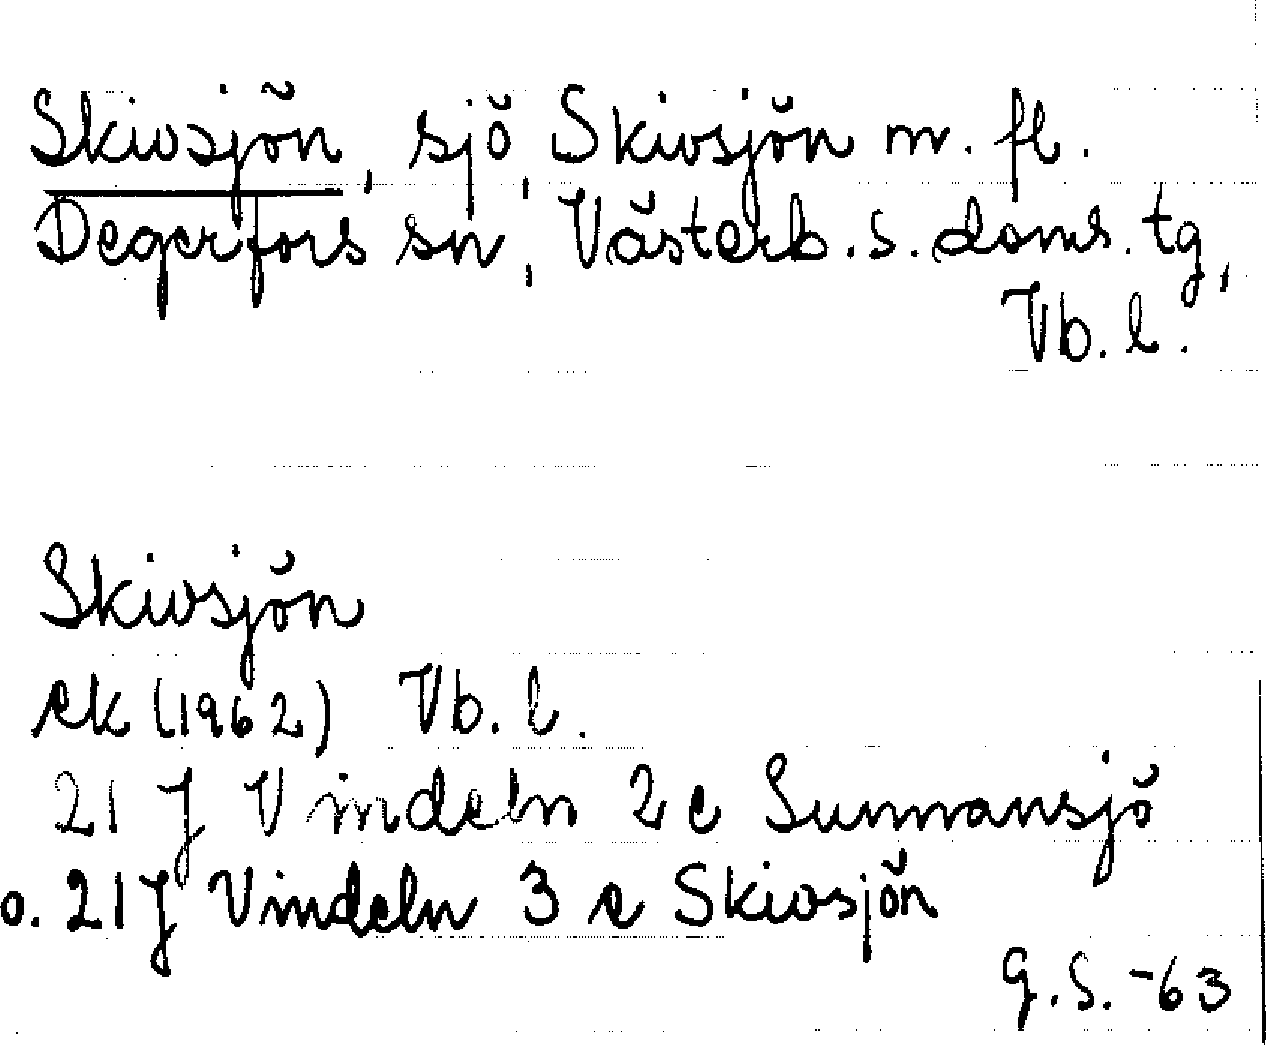 Skivsjön, sjö, Skivsjön m. fl.
Degerfors sn, Västerb. s. doms. tg,
Vb. l.
Skivsjön
ek (1962) Vb. l.
21 J Vindeln 2 e Sunnansjö
o. 21 J Vindeln 3 e Skivsjön
G.S. -63